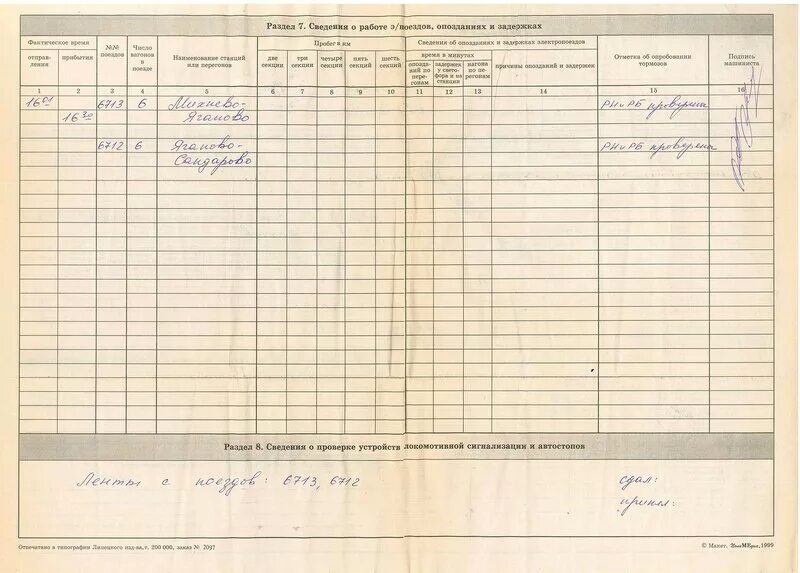 Раздел 7. Сведения о работе э/поездов, опозданиях и задержках
Фактическое время
№№ поездов
Число вагонов в поезде
Наименование станций или перегонов
Пробег в км
Сведения об опозданиях и задержках электропоездов
Отметка об опробовании тормозов
Подпись машиниста
отправления
прибытия
две секции
три секции
четыре секции
пять секций
шесть секций
время в минутах
опозданий по перегонам
задержек у светофора и на станции
нагона по перегонам
причины опозданий и задержек
1 2 3 4 5 6 7 8 9 10 11 12 13 14 15 16
16 01 6713 6 Михнево- РНиРБ проверены
16 30 Яганово
6712 6 Яганово- РНиРБ проверены
Сандарово
Раздел 8. Сведения о проверке устройств локомотивной сигнализации и автостопов
Ленты с поездов: 6713, 6712
сдал:
принял:
Отпечатано в типографии Липецкого изд-ва, т. 200 000, заказ № 7097
© Макет. 1999